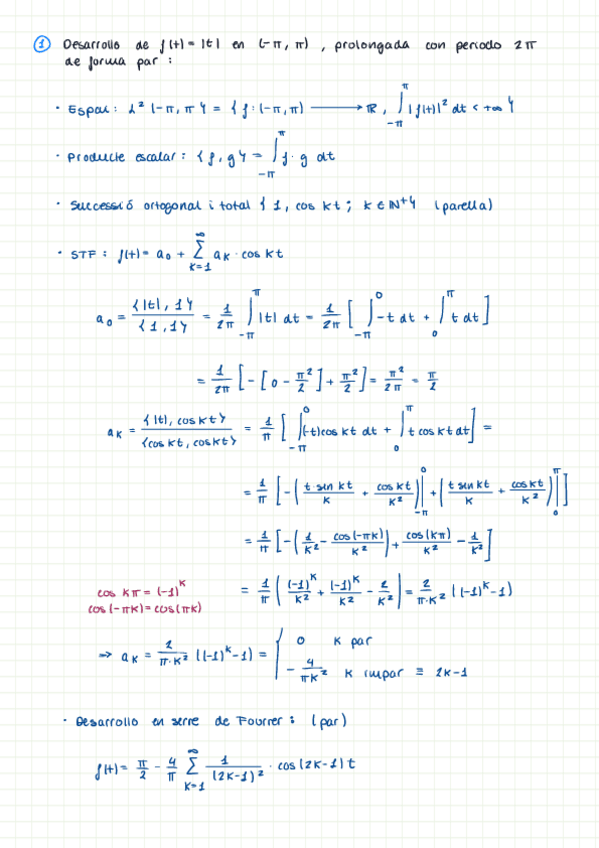 ① Desarrollo de f(t) = |t| en (-π, π), prolongada con periodo 2π
de forma par:
· Espai: L² (-π, π) = { f: (-π, π) ⟶ ℝ, ∫_{-π}^{π} |f(t)|² dt < +∞ }
· Producte escalar: {f, g} = ∫_{-π}^{π} f · g dt
· Successió ortogonal i total { 1, cos kt ; k ∈ ℕ⁺ } (parella)
· STF: f(t) = a₀ + ∑_{k=1}^{∞} a_k · cos kt
a₀ = {|t|, 1} / {1, 1} = 1/2π ∫_{-π}^{π} |t| dt = 1/2π [ ∫_{-π}^{0} -t dt + ∫_{0}^{π} t dt ]
= 1/2π [ - [ 0 - π²/2 ] + π²/2 ] = π²/2π = π/2
a_k = {|t|, cos kt} / {cos kt, cos kt} = 1/π [ ∫_{-π}^{0} (-t) cos kt dt + ∫_{0}^{π} t cos kt dt ] =
= 1/π [ - ( t · sin kt / k + cos kt / k² ) |_{-π}^{0} + ( t sin kt / k + cos kt / k² ) |_{0}^{π} ]
= 1/π [ - ( 1/k² - cos(-πk)/k² ) + cos(kπ)/k² - 1/k² ]
cos kπ = (-1)^k
cos(-πk) = cos(πk)
= 1/π ( (-1)^k/k² + (-1)^k/k² - 2/k² ) = 2/π·k² ((-1)^k - 1)
⇒ a_k = 2/π·k² ((-1)^k - 1) = { 0 k par
- 4/πk² k impar ≡ 2k-1
· Desarrollo en serie de Fourier: (par)
f(t) = π/2 - 4/π ∑_{k=1}^{∞} 1/(2k-1)² · cos(2k-1)t